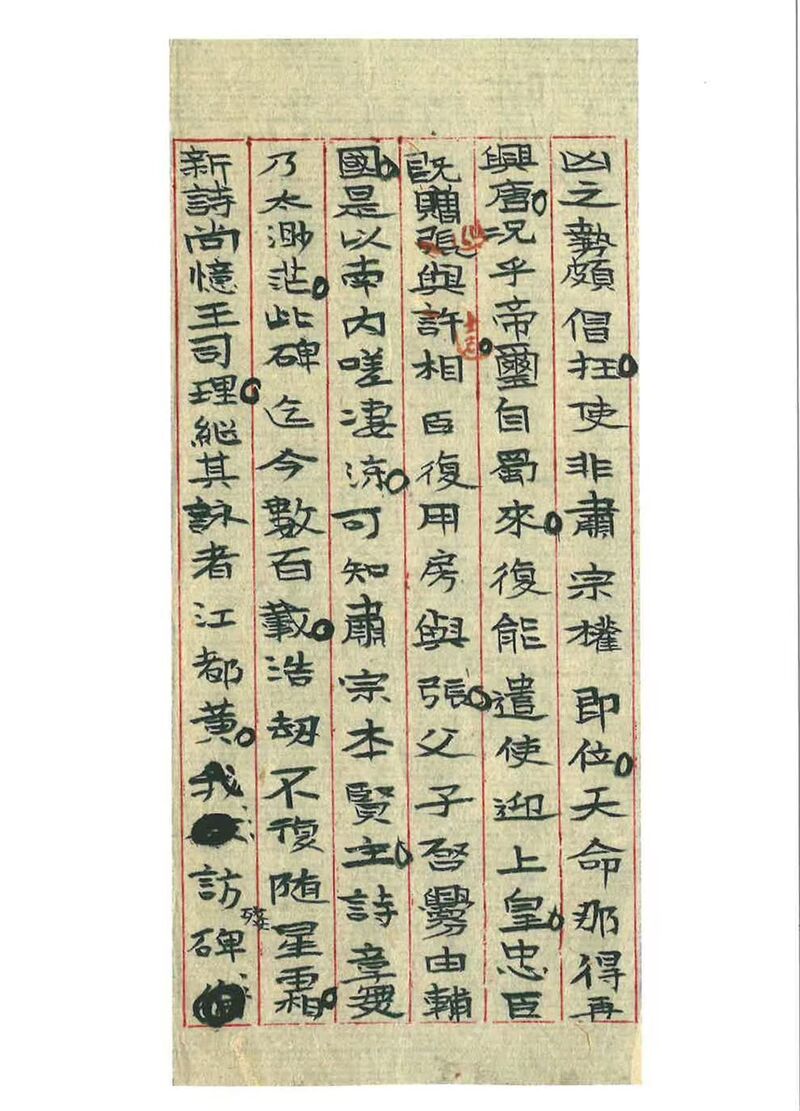 凶之勢頗倡狂使非肅宗權即位天命那得再
興唐况乎帝璽自蜀來復能遣使迎上皇忠臣
既贈張與許相臣復用房與張父子啓釁由輔
國是以南内嗟凄凉可知肅宗本賢主詩章
乃太渺茫此碑迄今數百載浩劫不復随星霜
新詩尚憶王司理継其詠者江都黄我訪殘碑